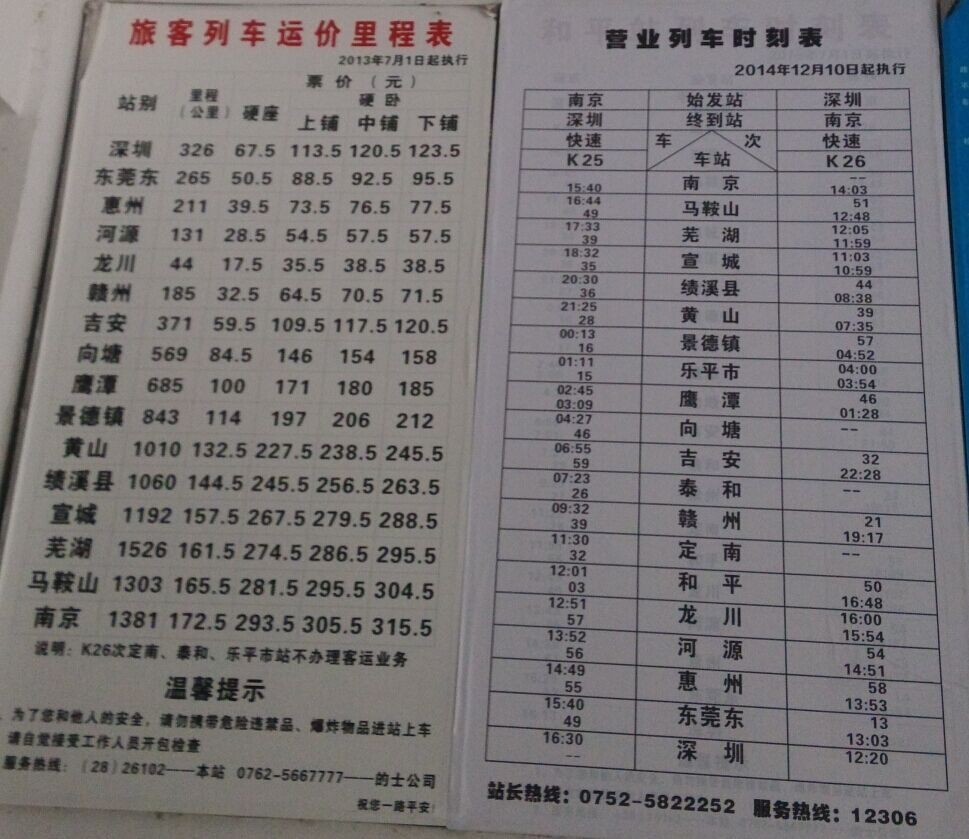 旅客列车运价里程表
2013年7月1日起执行
站别 里程(公里) 硬座 票价(元) 硬卧
上铺 中铺 下铺
深圳 326 67.5 113.5 120.5 123.5
东莞东 265 50.5 88.5 92.5 95.5
惠州 211 39.5 73.5 76.5 77.5
河源 131 28.5 54.5 57.5 57.5
龙川 44 17.5 35.5 38.5 38.5
赣州 185 32.5 64.5 70.5 71.5
吉安 371 59.5 109.5 117.5 120.5
向塘 569 84.5 146 154 158
鹰潭 685 100 171 180 185
景德镇 843 114 197 206 212
黄山 1010 132.5 227.5 238.5 245.5
绩溪县 1060 144.5 245.5 256.5 263.5
宣城 1192 157.5 267.5 279.5 288.5
芜湖 1526 161.5 274.5 286.5 295.5
马鞍山 1303 165.5 281.5 295.5 304.5
南京 1381 172.5 293.5 305.5 315.5
说明：K26次定南、泰和、乐平市站不办理客运业务
温馨提示
为了您和他人的安全，请勿携带危险违禁品、爆炸物品进站上车
请自觉接受工作人员开包检查
服务热线：(28)26102——本站 0762-5667777——的士公司
祝您一路平安！
营业列车时刻表
2014年12月10日起执行
南京 始发站 深圳
深圳 终到站 南京
快速 车 次 快速
K25 车站 K26
15:40 南京 -- 14:03
16:44 49 马鞍山 51 12:48
17:33 39 芜湖 12:05 11:59
18:32 35 宣城 11:03 10:59
20:30 36 绩溪县 44 08:38
21:25 28 黄山 39 07:35
00:13 16 景德镇 57 04:52
01:11 15 乐平市 04:00 03:54
02:45 03:09 鹰潭 46 01:28
04:27 46 向塘 --
06:55 59 吉安 32 22:28
07:23 26 泰和 --
09:32 39 赣州 21 19:17
11:30 32 定南 --
12:01 03 和平 50 16:48
12:51 57 龙川 16:00 15:54
13:52 56 河源 54 14:51
14:49 55 惠州 58 13:53
15:40 49 东莞东 13 13:03
16:30 -- 深圳 12:20
站长热线：0752-5822252 服务热线：12306